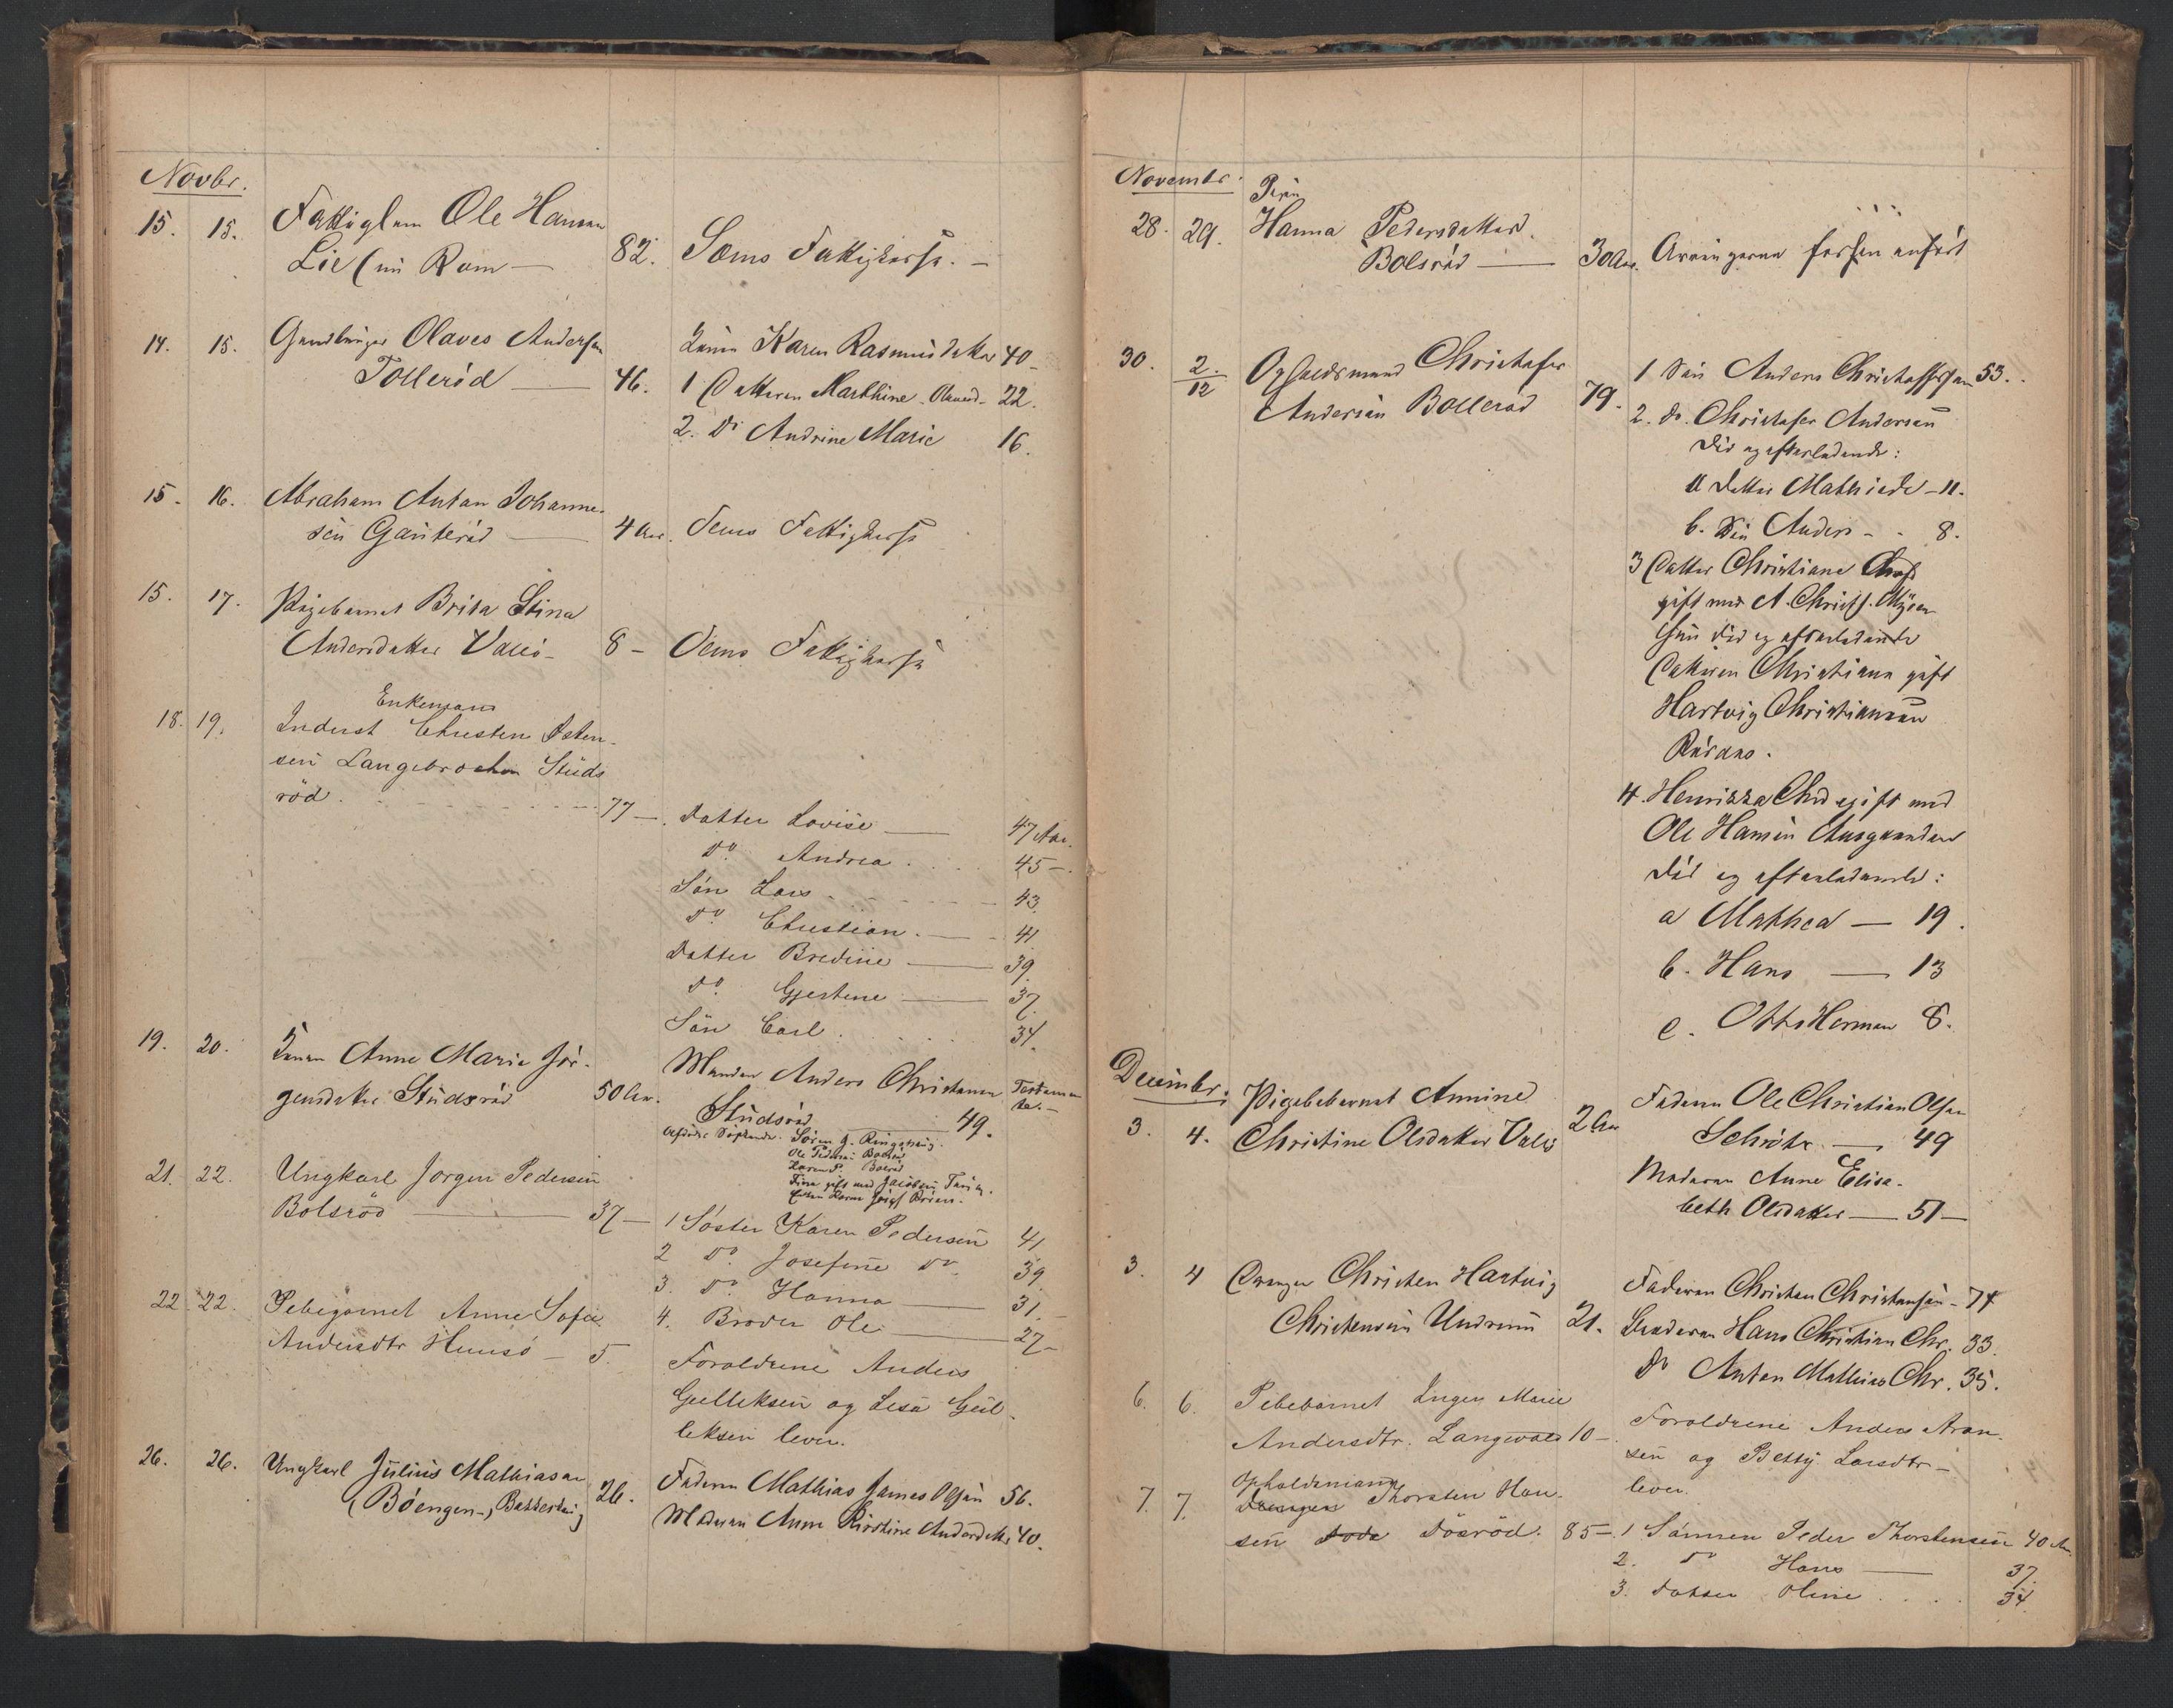 Novbr.
15. 15. Fattiglem Ole Hansen
Lie (nu Ram — 82. Sems Fattigkasse. —
14. 15. Gaardbruger Olaves Andersen
Tollerød — 46.
Enken Karen Rasmusdatter 40 —
1 Datteren Marthine Olavesd. 22.
2. Do Andrine Marie 16.
15. 16. Abraham Anton Johanne-
sen Gauterød — 4 Aar. Sems Fattigkasse
15. 17. Pigebarnet Brita Stina
Andersdatter Valø — 8 — Sems Fattigkasse
Enkemand
18. 19. Inderst Christen Osten-
sen Langebrochen Studs
rød. 77 —
Datter Lovise — 47 Aar.
Do Andrea 45 —
Søn Lars 43.
Do Christian. — 41
Datter Bredine — 39.
Do Gjertine — 37.
Søn Carl 34.
19. 20. Konen Anne Marie Jør-
gensdatter Studsrød 50 Aar.
Manden Anders Christensen Testamen
te. —
Studsrød 49.
Afdødes Søskende. Søren J. Ringshaug.
Ole Pedersen Bolsrød
Karen P. Bolsrød
Tina gift med Jacobsen
21. 22. Ungkarl Jørgen Pedersen
Bolsrød — 37 —
1 Søster Karen Pedersen 41
2 Do Josefine do 39.
3. Do Hanna — 31. —
4. Broder Ole — 27 —
22. 22. Pebegarnet Anne Sofie
Andersdtr Hunsø — 5.
Forældrene Anders
Gulliksen og Lesa Gul-
liksen lever.
26. 26. Ungkarl Julius Mathiasen
(Bøengen-) Bakkehaug 26.
Faderen Mathias James Olsen 56.
Moderen Anne Kirstine Andersdatter 40.
Novembr.
Pigen
28. 29. Hanna Pedersdatter
Bolsrød — 30 Aar. Arvingerne forhen anført
30. 2/12 Opholdsmand Christofer
Andersen Bollerød 79.
1 Søn Anders Christoffersen 53.
2. do. Christofer Andersen
død og efterladende:
a Datter Mathilde — 11.
b. Søn Anders - - 8.
3 Datter Christiane Chrd
gift med A. Christs.
hun død og efterladende
Datteren Christiana gift
Hartvig Christiansen
4. Henrikka Chrd gift med
Ole Hansen Ausgaarden
død og efterladende:
a Mathea — 19.
b. Hans — 13
c. Otto Herman 8.
Decembr.
3. 4. Pigebebarnet Annine
Christine Olsdatter Valø 2 Aar
Faderen Ole Christian Olsen
Schrøter — 49
Moderen Anne Elisa-
beth Olsdatter — 51 —
3. 4 Drengen Christen Hartvig
Christensen Undrum 21.
Faderen Christen Christensen — 74
Broderen Hans Christian Chr. 33.
Do Anton Mathias Chr. 35.
6. 6. Pebebarnet Inger Marie
Andersdtr. Langvold 10 —
Forældrene Anders Aron-
sen og Betty Larsdtr —
lever.
Opholdsmand
7. 7. Drengen Thorsten Han-
sen Dode Døsrød. 85 —
1 Sønnen Peder Thorstensen 40 Aar.
2. Do Hans — 37.
3. Datter Oline 34.